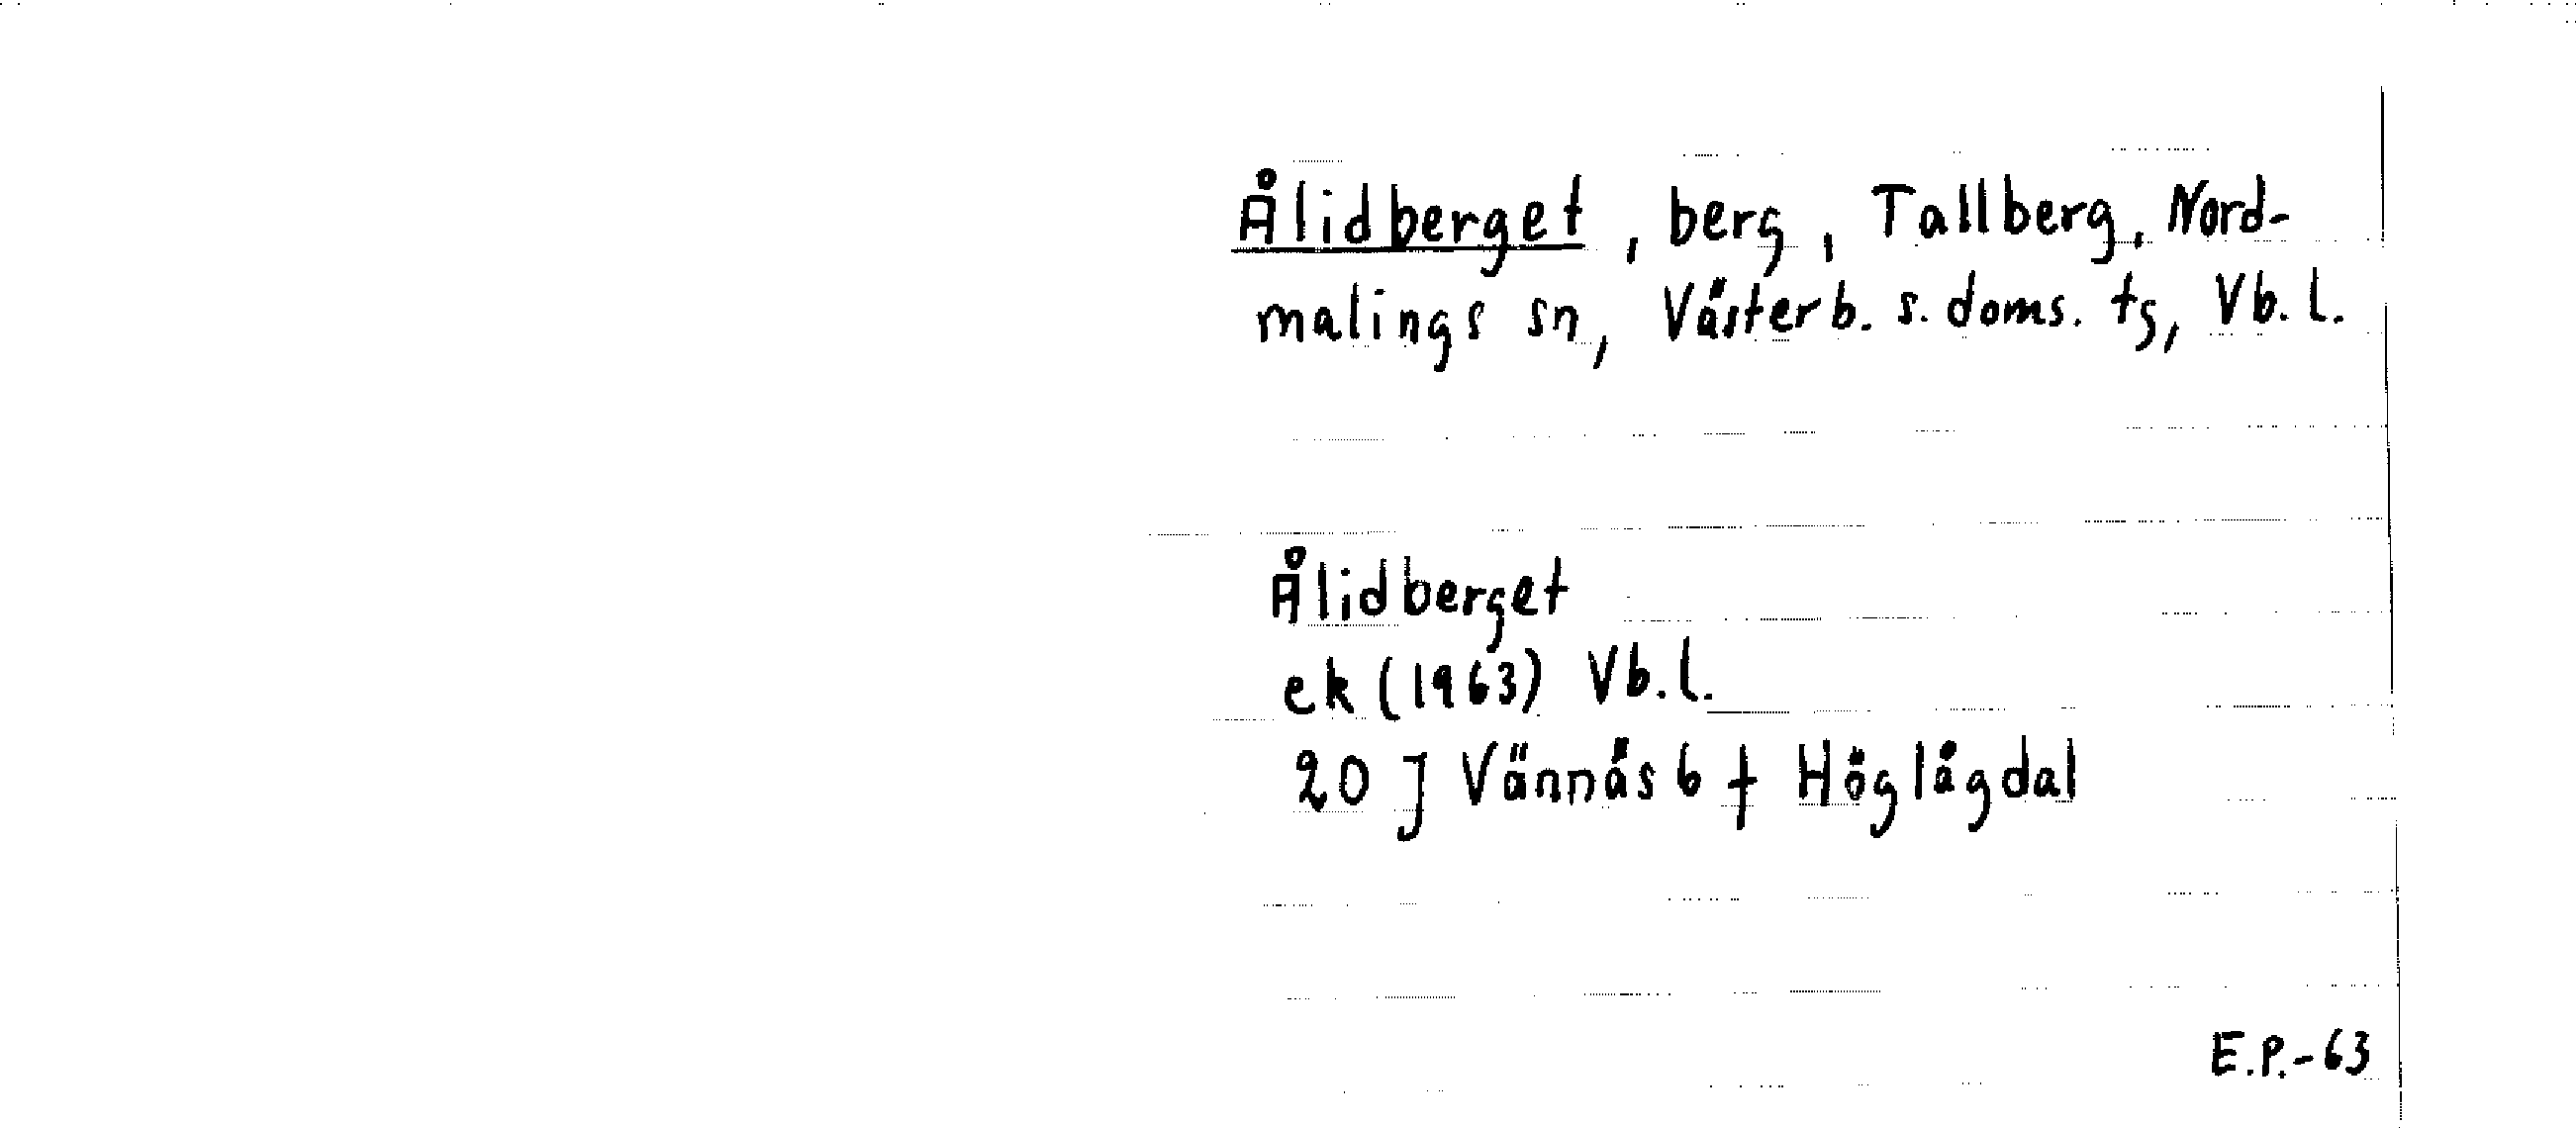 Ålidberget, berg, Tallberg, Nord-
malings sn, Västerb. s. doms. tg, Vb. l.
Ålidberget
ek (1963) Vb. l.
20 J Vännäs 6 f Höglågdal
E.P.-63